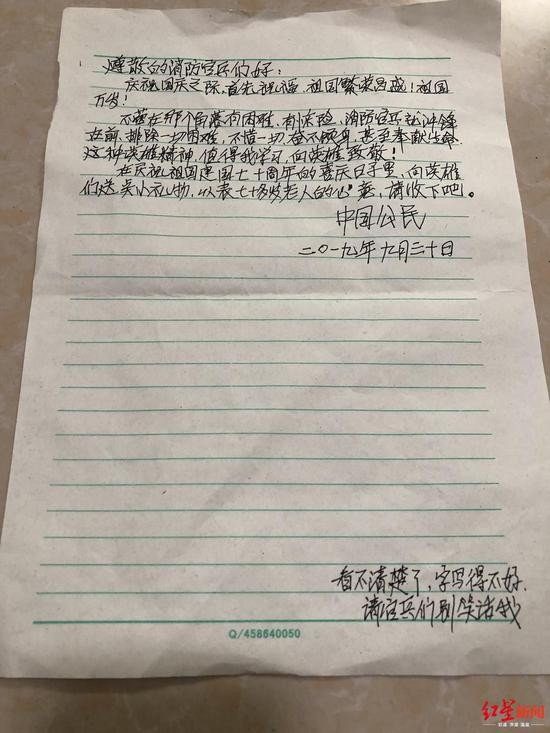 尊敬的消防官兵们好:
庆祝国庆之际,首先祝福,祖国繁荣昌盛!祖国
万岁!
不管在那个角落有困难,有求险,消防官兵 冲锋
在前,排除一切困难,不惜一切奋不顾身,甚至奉献生命
这种英雄精神,值得我学习,向英雄致敬!
在庆祝祖国建国七十周年的喜庆日子里,向英雄
们送关小礼物,以表七十多岁老人的心意,请收下吧。
中国公民
二〇一九年九月三十日
看不清楚了,字写得不好,
请官兵们别笑话我
Q/458640050
红星新闻